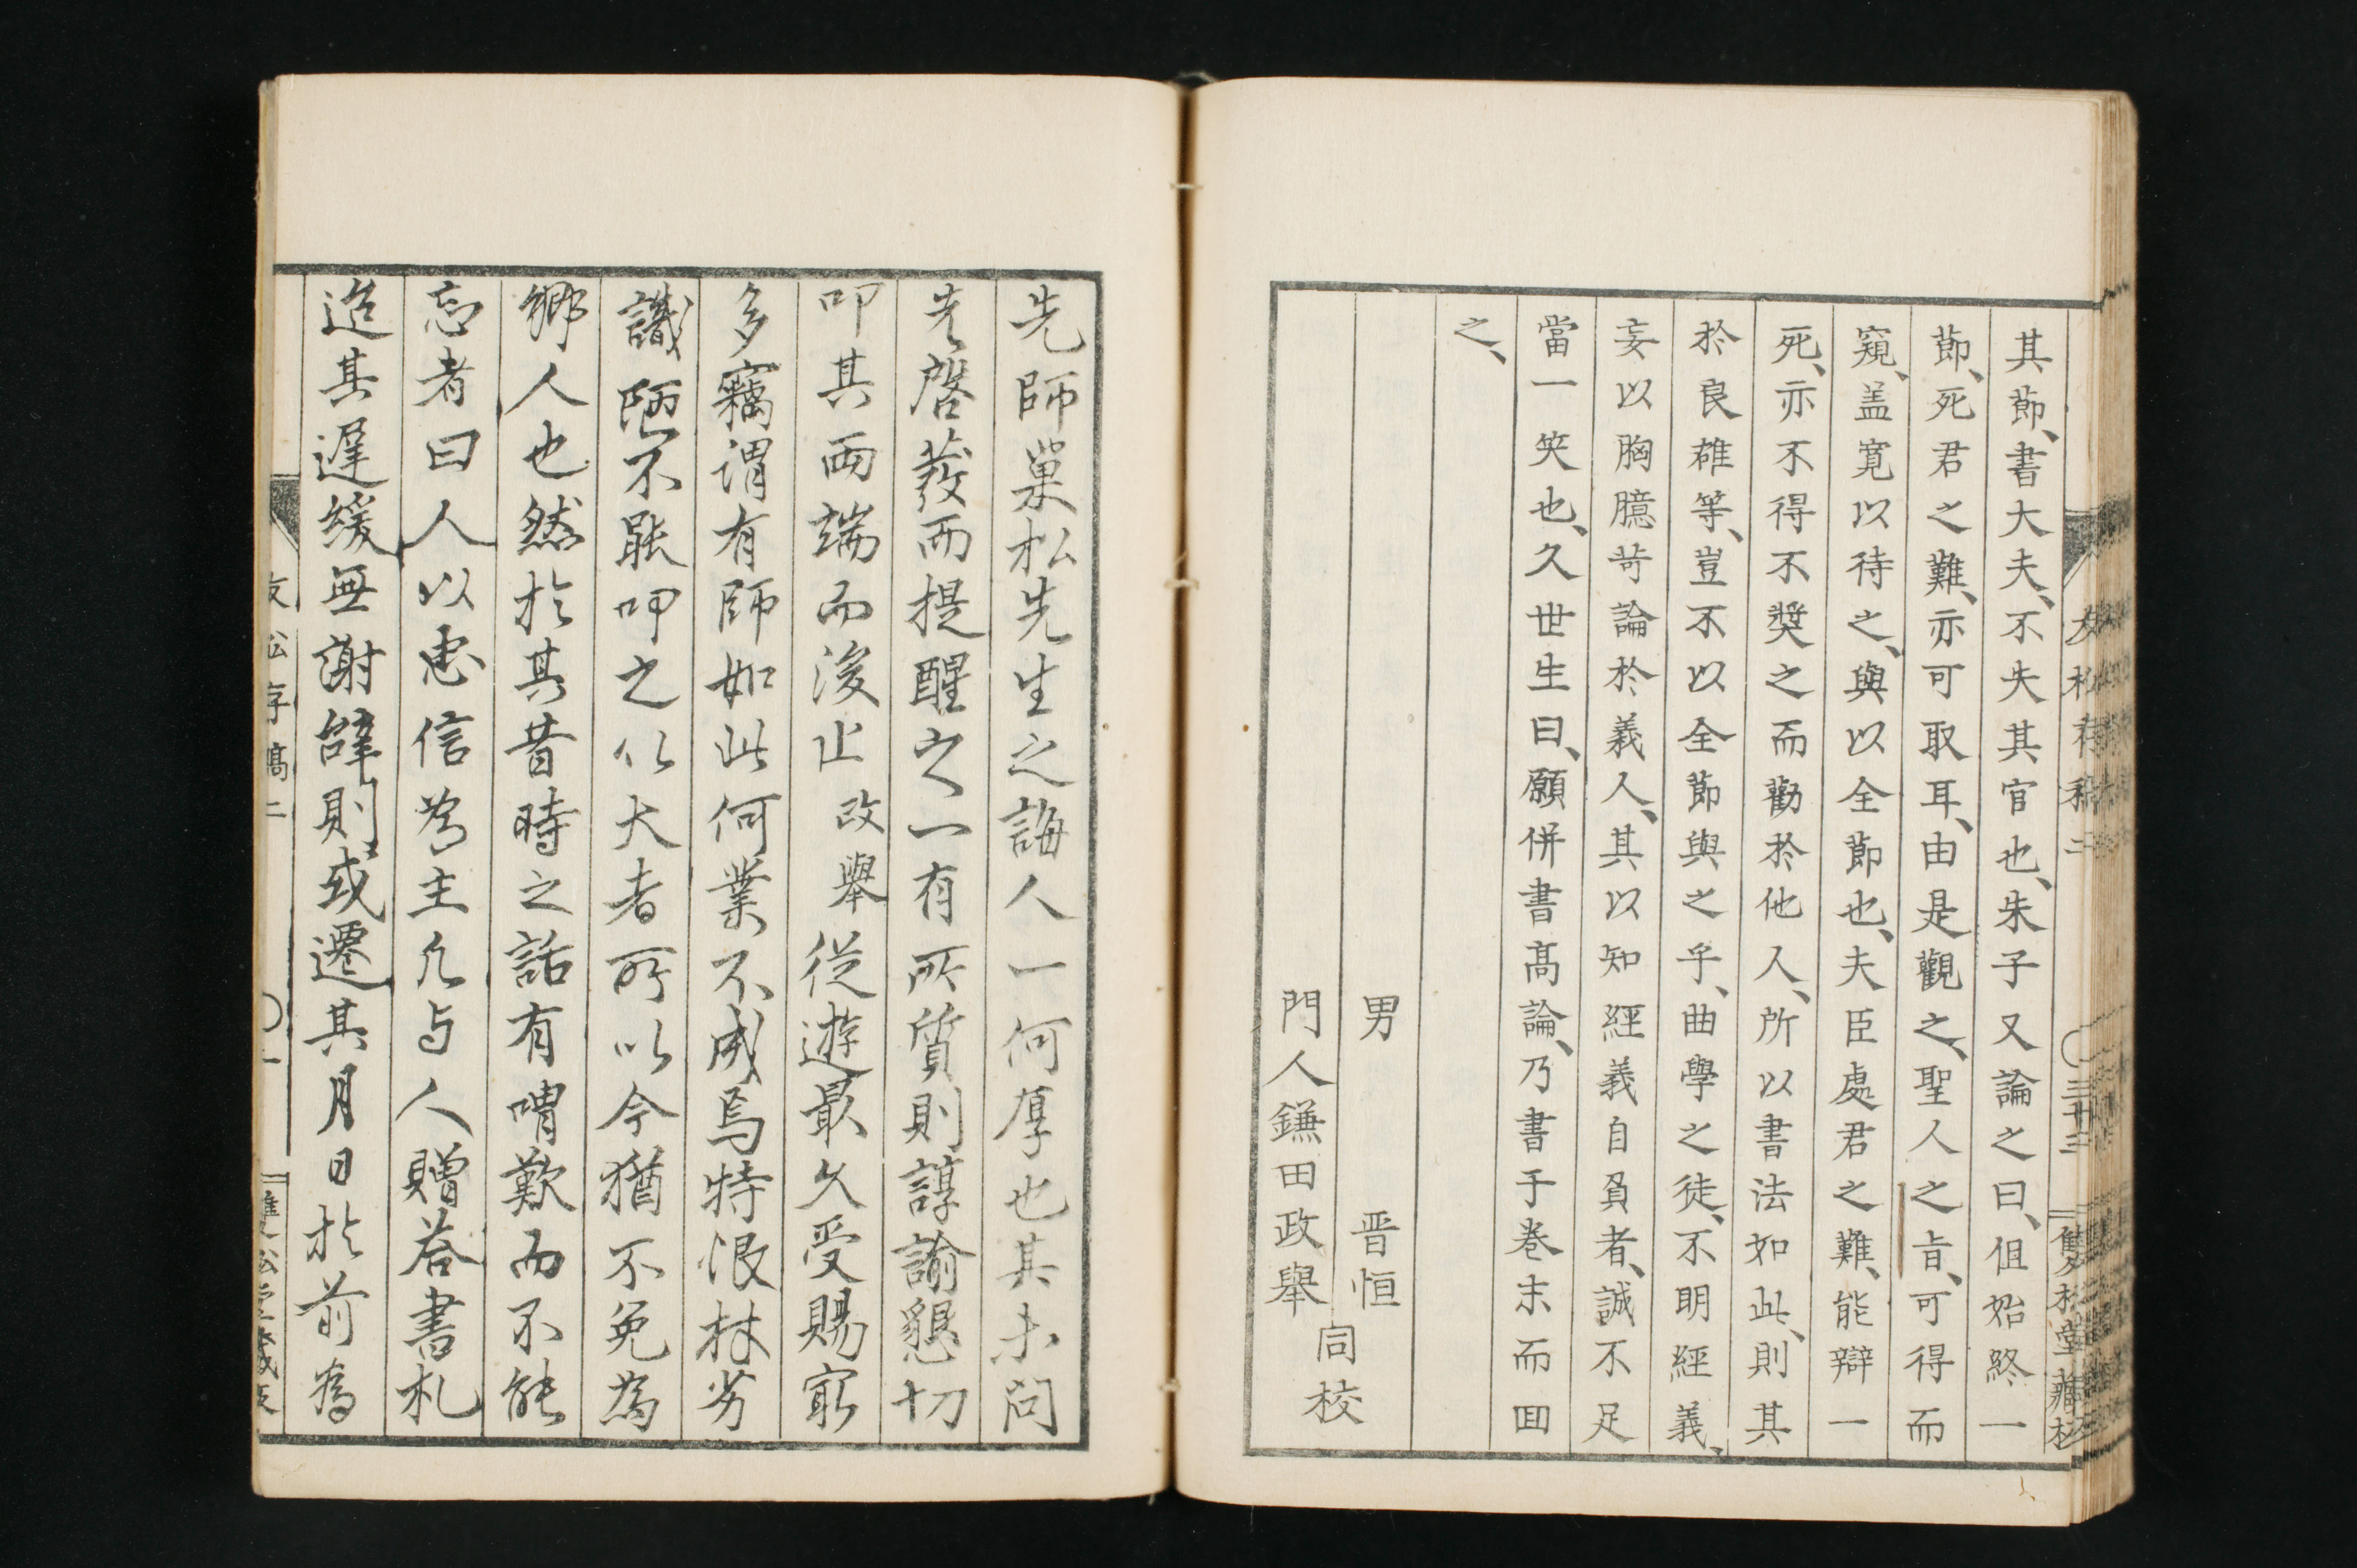 其節、書大夫、不失其官也、朱子又論之曰、但始終一
節、死君之難、亦可取耳、由是觀之、聖人之旨、可得而
窺、盖寛以待之、與以全節也、夫臣處君之難、能辯一
死、亦不得不奨之而勸於他人、所以書法如此、則其
於良雄等、豈不以全節與之乎、曲學之徒、不明經義、
妄以胸臆苛論於義人、其以知經義自負者、誠不足
當一笑也、久世生曰、願併書髙論、乃書于巻末而囬
之、
男 晋恒
門人鎌田政舉
同校
先師巢松先生之誨人一何厚也其未問
先啓發而提醒之一有所質則諄諭懇切
叩其両端而後止政舉従遊最久受賜寔
多竊謂有師如此何業不成焉特恨材劣
識陋不能叩之以大者所以今猶不免為
郷人也然於其昔時之話有喟歎而不能
忘者曰人以忠信為主凡与人贈荅書札
迨其遅緩無謝辞則或遷其月日於前為